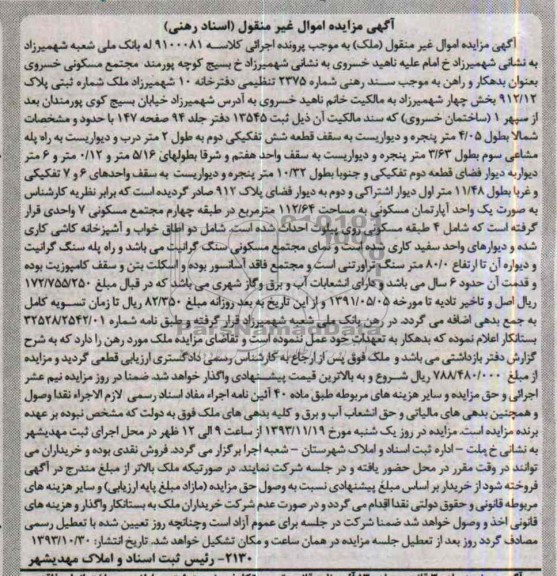 آگهی مزایده اموال غیر منقول (اسناد رهنی)
آگهی مزایده اموال غیر منقول (ملک) به موجب پرونده اجرائی کلاسه ۹۱۰۰۰۸۱ له بانک ملی شعبه شهمیرزاد
به نشانی شهمیرزاد خ امام علیه ناهید خسروی به نشانی شهمیرزاد خ بسیج کوچه پورمند مجتمع مسکونی خسروی
بعنوان بدهکار و راهن به موجب سند رهنی شماره ۲۳۷۵ تنظیمی دفترخانه ۱۰ شهمیرزاد ملک شماره ثبتی پلاک
۹۱۲/۱۲ بخش چهار شهمیرزاد به مالکیت خانم ناهید خسروی به آدرس شهمیرزاد خیابان بسیج کوی پورمندان بعد
از سپهر ۱ (ساختمان خسروی) که سند مالکیت آن ذیل ثبت ۱۳۵۴۵ دفتر جلد ۹۴ صفحه ۱۴۷ با حدود و مشخصات
شمالا بطول ۴/۰۵ متر پنجره و دیواریست به سقف قطعه شش تفکیکی دوم به طول ۲ متر درب و دیواریست به راه پله
مشاعی سوم بطول ۳/۶۳ متر پنجره و دیواریست به سقف واحد هفتم و شرقا بطولهای ۵/۱۶ متر و ۰/۱۲ متر و ۶ متر
دیواربه دیوار فضای قطعه دوم تفکیکی و جنوبا بطول ۱۰/۳۲ متر پنجره و دیواریست به سقف واحدهای ۶ و ۷ تفکیکی
و غربا بطول ۱۱/۴۸ متر اول دیوار اشتراکی و دوم به دیوار فضای پلاک ۹۱۲ صادر گردیده است که برابر نظریه کارشناس
به صورت یک واحد آپارتمان مسکونی به مساحت ۱۱۲/۶۴ مترمربع در طبقه چهارم مجتمع مسکونی ۷ واحدی قرار
گرفته است که شامل ۴ طبقه مسکونی روی پیلوت احداث شده است شامل دو اطاق خواب و آشپزخانه کاشی کاری
شده و دیوارهای واحد سفید کاری شده است و نمای مجتمع مسکونی سنگ گرانیت می باشد و راه پله سنگ گرانیت
و دیواره آن تا ارتفاع ۸۰/۰ متر سنگ تراورتنی است و مجتمع فاقد آسانسور بوده و اسکلت بتن و سقف کامپوزیت بوده
و قدمت آن حدود ۶ سال می باشد و دارای انشعابات آب و برق و گاز شهری می باشد که در قبال مبلغ ۱۷۲/۷۵۵/۲۵۰
ریال اصل و تاخیر تادیه تا مورخه ۱۳۹۱/۰۵/۰۵ و از این تاریخ به بعد روزانه مبلغ ۸۲/۳۵۰ ریال تا زمان تسویه کامل
به جمع بدهی اضافه می گردد. در رهن بانک ملی شعبه شهمیرزاد قرار گرفته و طبق نامه شماره ۳۲۵۲۸/۲۵۴۲/۰۱
بستانکار اعلام نموده که بدهکار به تعهدات خود عمل ننموده است و تقاضای مزایده ملک مورد رهن را دارد که به شرح
گزارش دفتر بازداشتی می باشد و ملک فوق پس از ارجاع به کارشناس رسمی دادگستری ارزیابی قطعی گردید و مزایده
از مبلغ ۷۸۸/۴۸۰/۰۰۰ ریال شروع و به بالاترین قیمت پیشنهادی واگذار خواهد شد. ضمنا در روز مزایده نیم عشر
اجرائی و حق مزایده و سایر هزینه های مربوطه طبق ماده ۴۰ آئین نامه اجراء مفاد اسناد رسمی لازم الاجراء نقدا وصول
و همچنین بدهی های مالیاتی و حق انشعاب آب و برق و کلیه بدهی های ملک فوق به دولت که مشخص نبوده بر عهده
برنده مزایده است. مزایده در روز یک شنبه مورخ ۱۳۹۳/۱۱/۱۹ از ساعت ۹ الی ۱۲ ظهر در محل اجرای ثبت مهدیشهر
به نشانی خ ملت – اداره ثبت اسناد و املاک شهرستان – شعبه اجرا برگزار می گردد. فروش نقدی بوده و خریداران می
توانند در وقت مقرر در محل حضور یافته و در جلسه شرکت نمایند. در صورتیکه ملک بالاتر از مبلغ مندرج در آگهی
فروخته شود از خریدار بر اساس مبلغ پیشنهادی نسبت به وصول حق مزایده (مازاد مبلغ پایه ارزیابی) و سایر هزینه های
مربوطه قانونی و حقوق دولتی نقدا اقدام می گردد و در صورت عدم شرکت خریداران ملک به بستانکار واگذار و هزینه های
قانونی اخذ و وصول خواهد شد ضمنا شرکت در جلسه برای عموم آزاد است و چنانچه روز تعیین شده با تعطیل رسمی
مصادف گردد روز بعد از تعطیل جلسه مزایده در همان ساعت و مکان تشکیل خواهد شد. تاریخ انتشار: ۱۳۹۳/۱۰/۳۰
۲۱۳۰- رئیس ثبت اسناد و املاک مهدیشهر
ParsNamadData